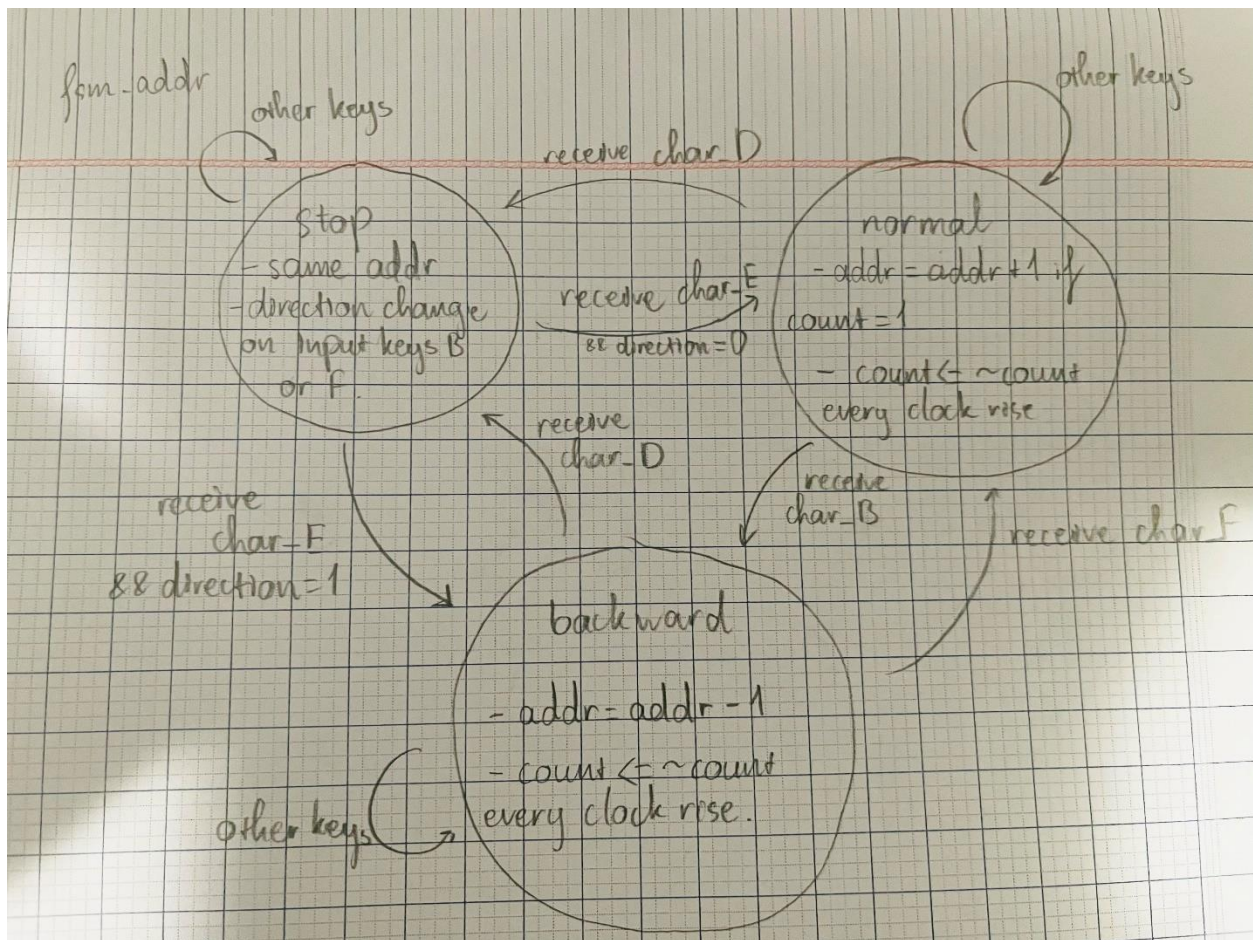 fsm_addr
other keys
other keys
receive char_D
stop
- same addr
- direction change
on input keys B
or F.
receive char_E
&& direction=0
normal
- addr = addr + 1 if
count = 1
- count <= ~count
every clock rise
receive
char_D
receive
char_B
receive char_F
receive
char_E
&& direction = 1
backward
- addr = addr - 1
- count <= ~count
every clock rise.
other keys